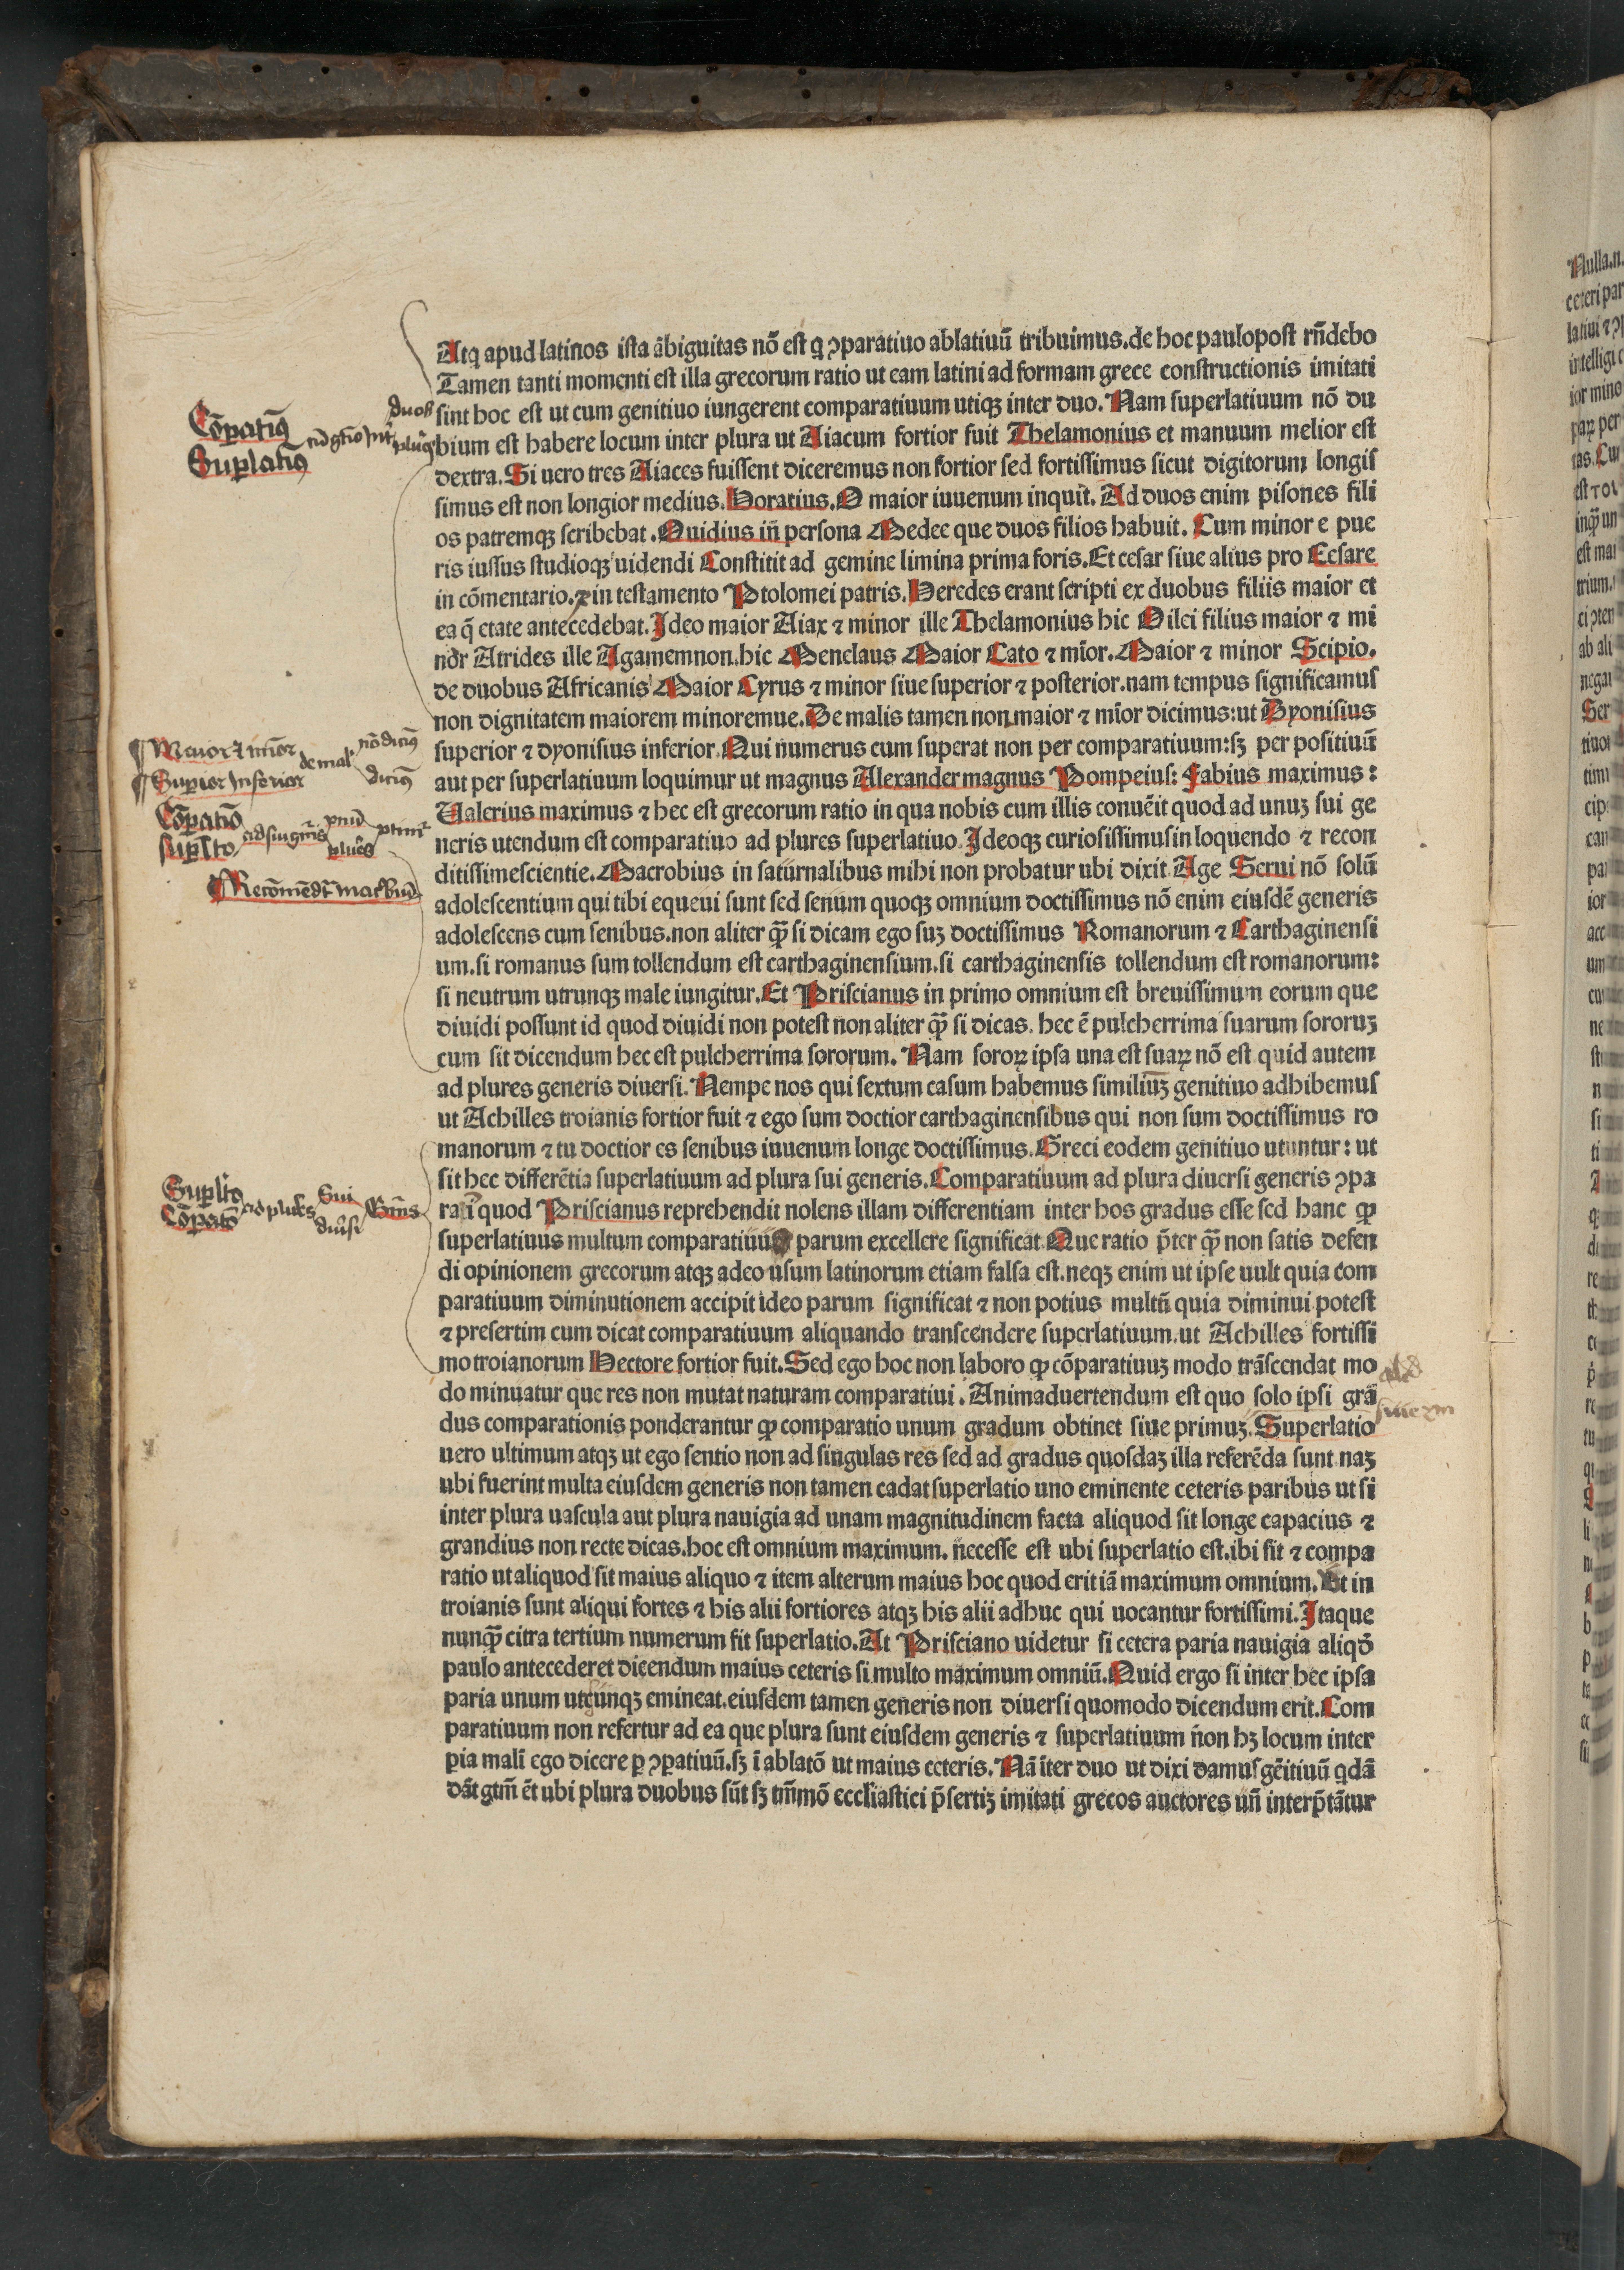 Atq apud latinos ista ābiguitas nō est q ꝯparatiuo ablatiuū tribuimus.de hoc paulopost rñdebo
Tamen tanti momenti est illa grecorum ratio ut eam latini ad formam grece constructionis imitati
sint hoc est ut cum genitiuo iungerent comparatiuum utiqꝫ inter duo. Nam superlatiuum nō du
bium est habere locum inter plura ut Aiacum fortior fuit Thelamonius et manuum melior est
dextra. Si uero tres Aiaces fuissent diceremus non fortior sed fortissimus sicut digitorum longis
simus est non longior medius. Horatius. O maior iuuenum inquit. Ad duos enim pisones fili
os patremqꝫ scribebat. Ouidius iñ persona Medee que duos filios habuit. Cum minor e pue
ris iussus studioqꝫ uidendi Constitit ad gemine limina prima foris. Et cesar siue alius pro Cesare
in cōmentario. ⁊ in testamento Ptolomei patris. Heredes erant scripti ex duobus filiis maior et
ea q̄ etate antecedebat. Ideo maior Aiax ⁊ minor ille Thelamonius hic Oilei filius maior ⁊ mi
nor Atrides ille Agamemnon.hic Menelaus Maior Cato ⁊ mīor. Maior ⁊ minor Scipio.
de duobus Africanis Maior Cyrus ⁊ minor siue superior ⁊ posterior.nam tempus significamus
non dignitatem maiorem minoremue. De malis tamen non maior ⁊ mīor dicimus: ut Dyonisius
superior ⁊ dyonisius inferior. Qui numerus cum superat non per comparatiuum: sꝫ per positiuū
aut per superlatiuum loquimur ut magnus Alexander magnus Pompeius: Fabius maximus:
Ualerius maximus ⁊ hec est grecorum ratio in qua nobis cum illis conuēit quod ad unuꝫ sui ge
neris utendum est comparatiuo ad plures superlatiuo. Ideoqꝫ curiosissimus in loquendo ⁊ recon
ditissimescientie. Macrobius in saturnalibus mihi non probatur ubi dixit Age Serui nō solū
adolescentium qui tibi equeui sunt sed senum quoqꝫ omnium doctissimus nō enim eiusdē generis
adolescens cum senibus.non aliter qꝫ̄ si dicam ego suꝫ doctissimus Romanorum ⁊ Carthaginensi
um.si romanus sum tollendum est carthaginensium.si carthaginensis tollendum est romanorum:
si neutrum utrunqꝫ male iungitur. Et Priscianus in primo omnium est breuissimum eorum que
diuidi possunt id quod diuidi non potest non aliter qꝫ̄ si dicas. hec ē pulcherrima suarum sororuꝫ
cum sit dicendum hec est pulcherrima sororum. Nam soroꝝ ipsa una est suaꝝ nō est quid autem
ad plures generis diuersi. Nempe nos qui sextum casum habemus similiuꝫ genitiuo adhibemus
ut Achilles troianis fortior fuit ⁊ ego sum doctior carthaginensibus qui non sum doctissimus ro
manorum ⁊ tu doctior es senibus iuuenum longe doctissimus. Greci eodem genitiuo utuntur: ut
sit hec differētia superlatiuum ad plura sui generis. Comparatiuum ad plura diuersi generis ꝯpa
rat̄ quod Priscianus reprehendit nolens illam differentiam inter hos gradus esse sed hanc ꝙ
superlatiuus multum comparatiuus parum excellere significat. Que ratio p̄ter qꝫ̄ non satis defen
di opinionem grecorum atqꝫ adeo usum latinorum etiam falsa est.neqꝫ enim ut ipse uult quia com
paratiuum diminutionem accipit ideo parum significat ⁊ non potius multū quia diminui potest
⁊ presertim cum dicat comparatiuum aliquando transcendere superlatiuum.ut Achilles fortissi
mo troianorum Hectore fortior fuit. Sed ego hoc non laboro ꝙ cōparatiuuꝫ modo trāscendat mo
do minuatur que res non mutat naturam comparatiui. Animaduertendum est quo solo ipsi gra
dus comparationis ponderantur ꝙ comparatio unum gradum obtinet siue primuꝫ. Superlatio
uero ultimum atqꝫ ut ego sentio non ad singulas res sed ad gradus quosdaꝫ illa referēda sunt naꝫ
ubi fuerint multa eiusdem generis non tamen cadat superlatio uno eminente ceteris paribus ut si
inter plura uascula aut plura nauigia ad unam magnitudinem facta aliquod sit longe capacius ⁊
grandius non recte dicas.hoc est omnium maximum. necesse est ubi superlatio est.ibi sit ⁊ compa
ratio ut aliquod sit maius aliquo ⁊ item alterum maius hoc quod erit iā maximum omnium. Et in
troianis sunt aliqui fortes ⁊ his alii fortiores atqꝫ his alii adhuc qui uocantur fortissimi. Itaque
nunqꝫ̄ citra tertium numerum fit superlatio. At Prisciano uidetur si cetera paria nauigia aliqō
paulo antecederet dicendum maius ceteris si multo maximum omniū. Quid ergo si inter hec ipsa
paria unum utcunqꝫ emineat.eiusdem tamen generis non diuersi quomodo dicendum erit. Com
paratiuum non refertur ad ea que plura sunt eiusdem generis ⁊ superlatiuum non hꝫ locum inter
ꝑia malī ego dicere ꝑ ꝯpatiuū.sꝫ ī ablatō ut maius ceteris. Nā īter duo ut dixi damus gēitiuū qdā
dāt gtm̄ ēt ubi plura duobus sūt sꝫ tm̄mō eccl̄iastici p̄sertiꝫ imitati grecos auctores uñ interp̄tātur
Cōꝑatiuꝰ
Suꝑlatiuꝰ
duos
Maior et mīor
Superior Inferior
de mal
nō dicimꝰ
dicimꝰ
Cōꝑatio
Suꝑlatio
plures
Suꝑlatio
Cōꝑatio
ad plures
Sui
diuersi
Gn̄is